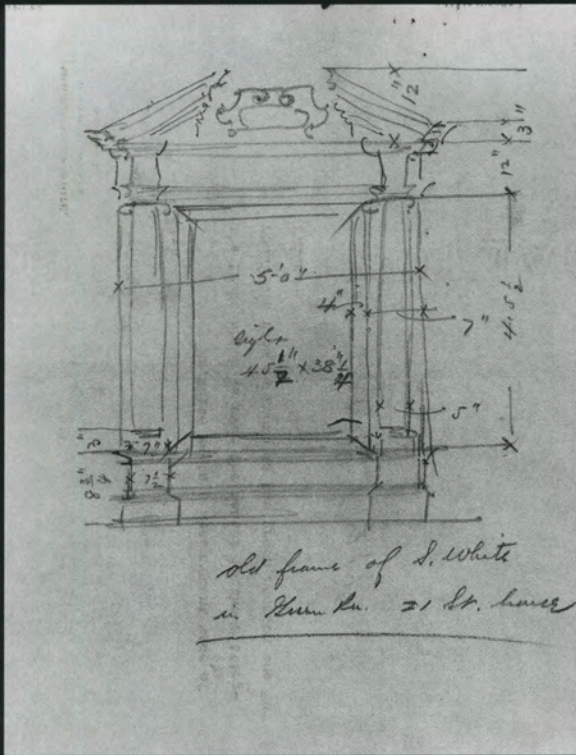 12"
3"
12"
5'-0"
4"
7"
4.5 1/2
sight
45 1/2" x 38 1/4"
5"
7"
3"
8 3/4"
7 1/2
old frame of S. White
in Green Rm. 21 St. house